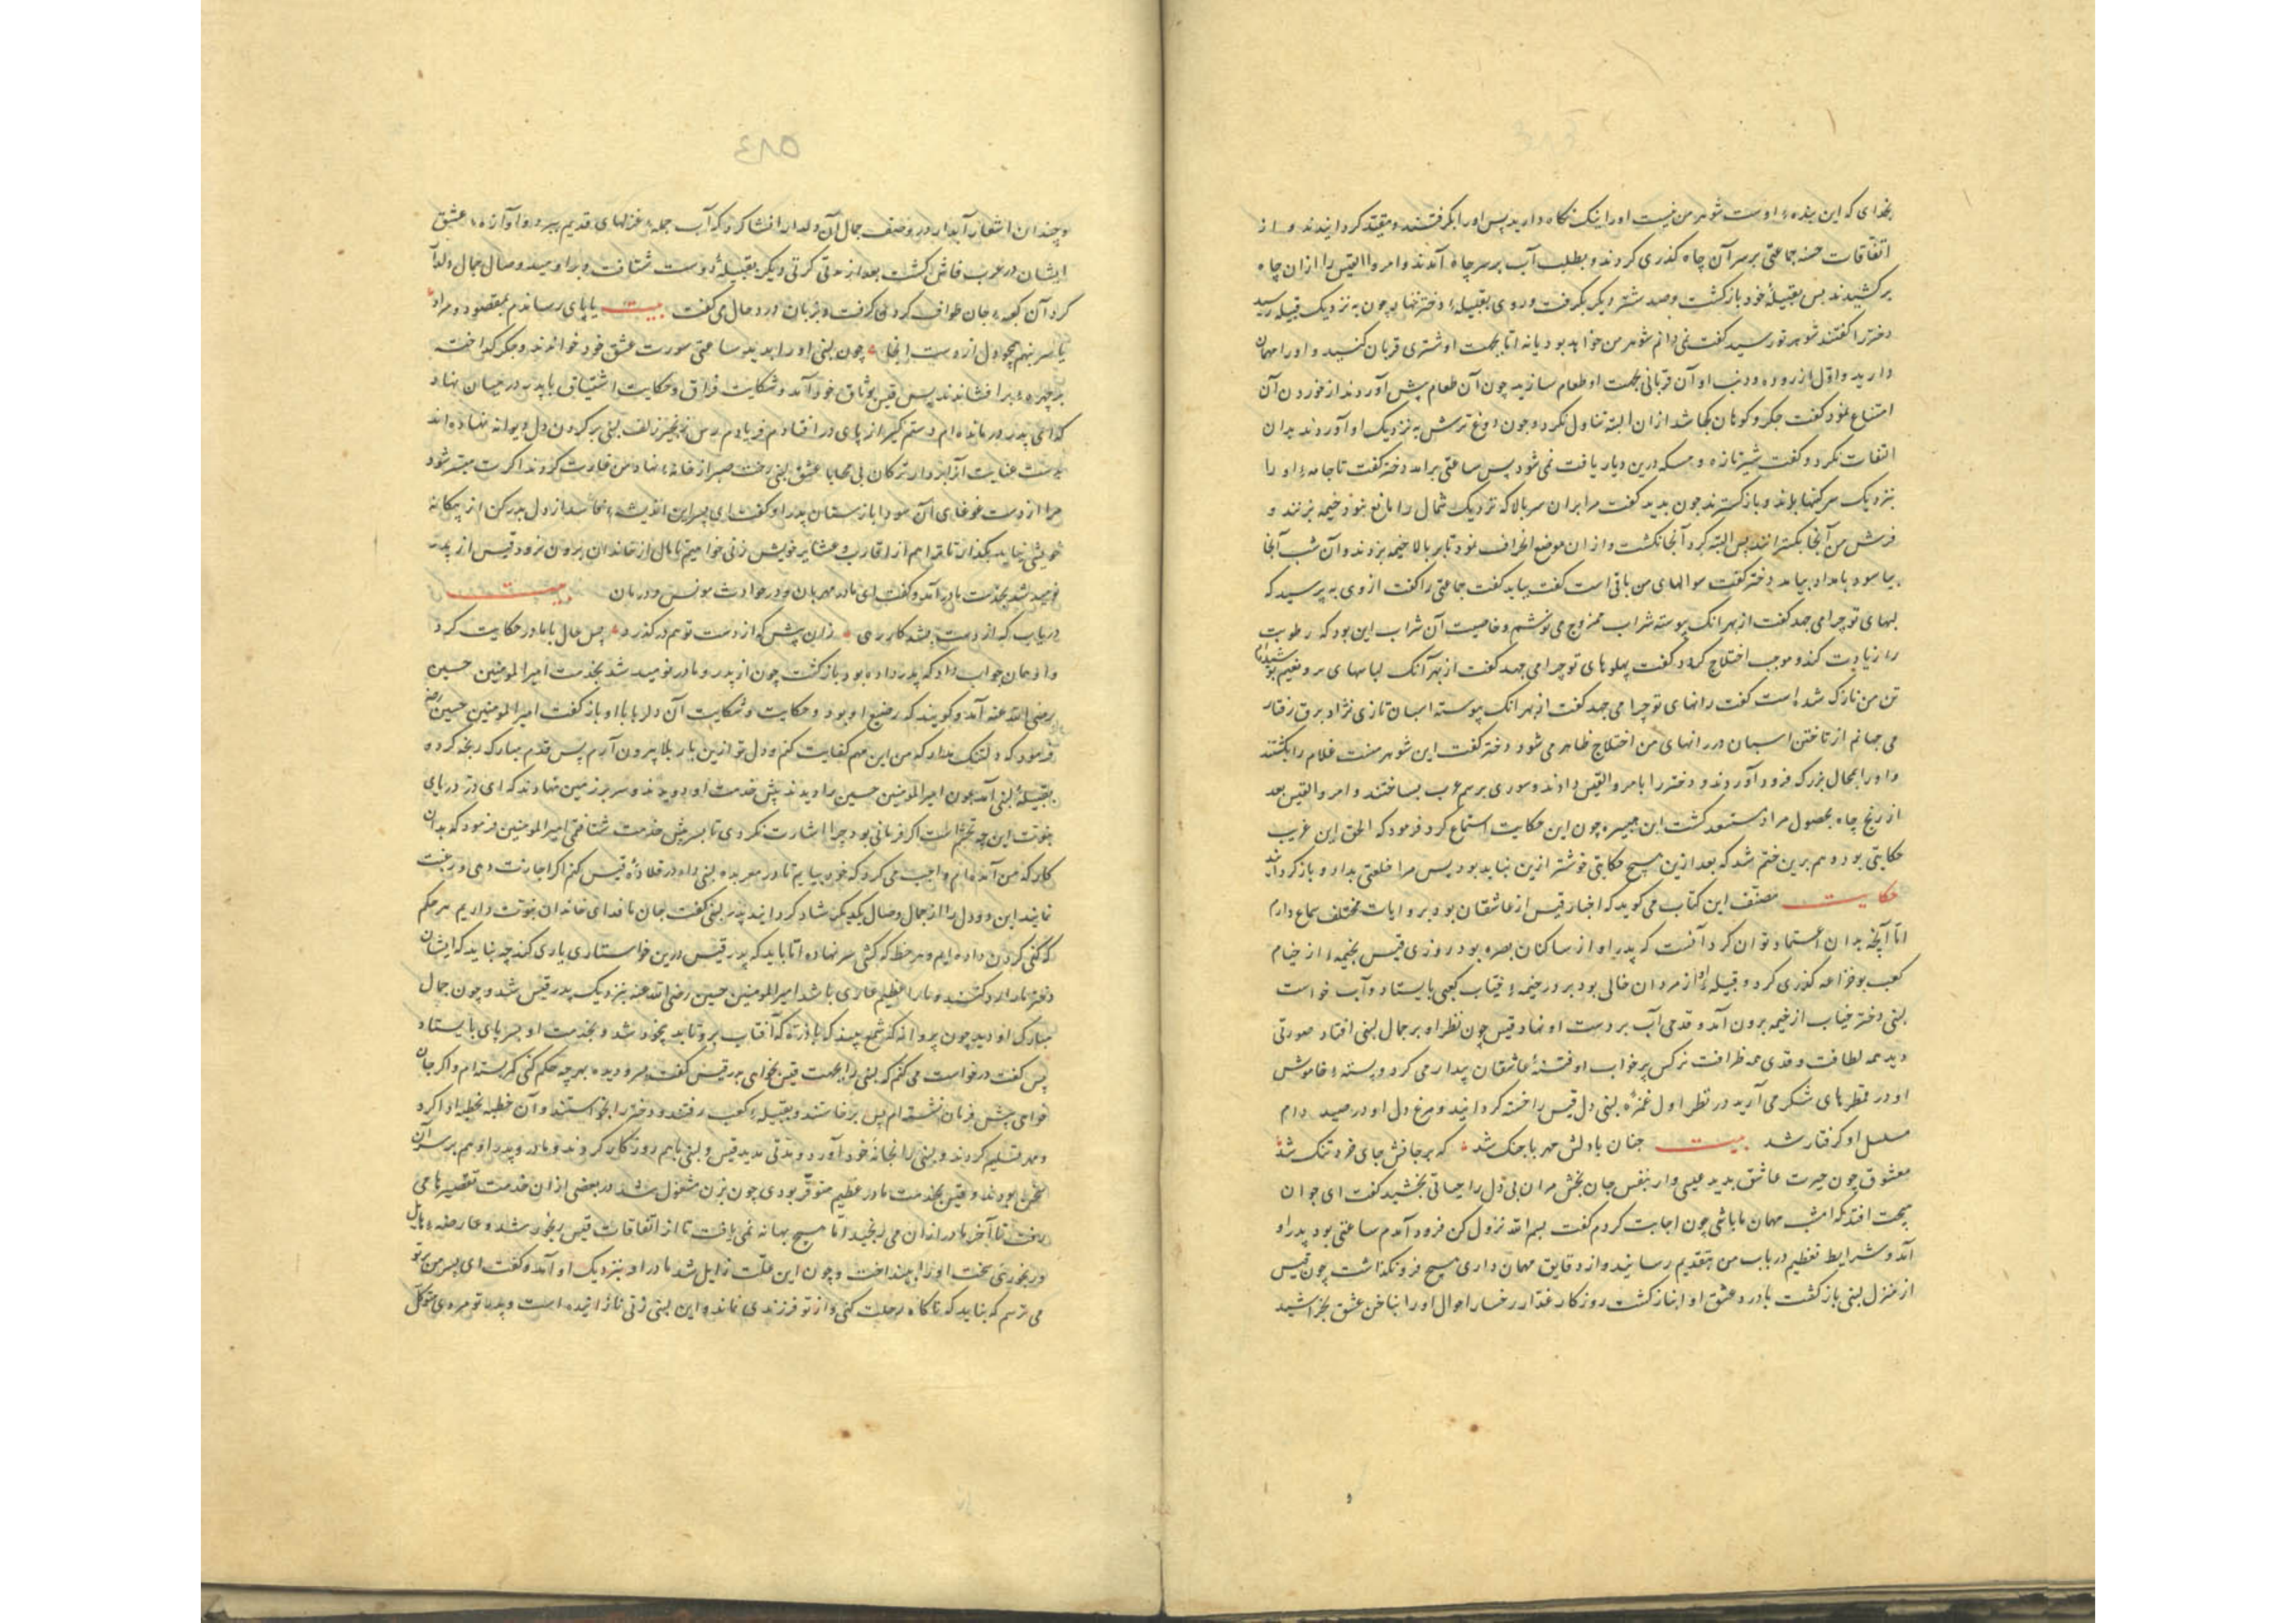 بخدای که این بنده اوست شوهر من نیست او را اینک نگاه دارید پس او را بگرفتند و مقید کردانیدند و از
اتفاقات حسنه جماعتی بر سر آن چاه گذری کردند و بطلب آب بر سر چاه آمدند و امرواالقیس را از ان چاه
برکشیدند پس بقبیلهٔ خود بازکشت و صد شتر دیکر بگرفت و روی بقبیلهٔ دختر نهاد چون به نزدیک قبیله رسید
دختر را کفتند شوهر تو رسید کفت نمی دانم شوهر من خواهد بود یا نه اما بجهت او شتری قربان کنید و او را مهمان
دارید و اول از روده و دنب او آن قربانی بجهت او طعام سازید چون آن طعام پیش آوردند از خوردن آن
امتناع نمود کفت جکر و کوهان کجا شد از ان البته تناول نکرد و چون دوغ ترش به نزدیک او آوردند بدان
التفات نکرد و کفت شیر تازه و مسکه درین دیار یافت نمی شود پس ساعتی برآمد دختر کفت تا جامهٔ او را
بنزدیک سرکینها بلند و باز کستردند چون بدید کفت مرا بران سر بالا که نزدیک شمال را مانع نبود خیمه بزنند و
فرش من آنجا بکسترانند پس البته کرد آنجا نکشت و از ان موضع انحراف نمود تا بر بالا خیمه بزدند و آن شب آنجا
بیاسود بامداد بیامد دختر کفت سوالهای من باقی است کفت بیاید کفت جماعتی را کفت از وی به پرسید که
لبهای تو چرا می جهد کفت از بهر انک پیوسته شراب ممزوج می نوشم و خاصیت آن شراب این بود که رطوبت
را زیادت کند و موجب اختلاج کردد کفت پهلوهای تو چرا می جهد کفت از بهر آنک لباسهای نرم و نعیم پوشیده‌ام
تن من نازک شده است کفت رانهای تو چرا می جهد کفت از بهر انک پیوسته اسبان تازی نژاد برق رفتار
می جهانم از تاختن اسبان در رانهای من اختلاج ظاهر می شود دختر کفت این شوهر منست غلام را بکشتند
و او را بمحال بزرک فرود آوردند و دختر را بامرواالقیس دادند و سوری برسم عرب بساختند و امرواالقیس بعد
از رنج چاه بحصول مراد مستسعد کشت ابن هبیره چون این حکایت استماع کرد فرمود که الحق این غریب
حکایتی بود و هم برین ختم شد که بعد ازین هیچ حکایتی خوشتر ازین نباید بود پس مرا خلعتی بداد و بازکردانید
حکایت مصنف این کتاب می کوید که اخبار قیس از عاشقان بود بروایات مختلف سماع دارم
اما آنچه بدان اعتماد توان کرد آنست که پدر او از ساکنان بصره بود روزی قیس بخیمهٔ از خیام
کعب بو خزاعه کذری کرد و قبیلهٔ او از مردان خالی بود بر در خیمهٔ کعبی بایستاد و آب خواست
لبنی دختر حباب از خیمه برون آمد و قدحی آب بر دست او نهاد قیس چون نظر او بر جمال لبنی افتاد صورتی
دید همه لطافت و قدی همه ظرافت نرکس پرخواب او فتنهٔ عاشقان بیدار می کرد و پستهٔ خاموش
او در قطرهای شکر می آرید در نظر اول غمزهٔ لبنی دل قیس را خسته کردانید و مرغ دل او در صید دام
مسلسل او کرفتار شد بیت چنان با دلش مهر با جنک شد که بر جانش جای خرد تنک شد
معشوق چون حیرت عاشق بدید عیسی وار بنفس جان بخش مر ان بی دل را حیاتی بخشید کفت ای جوان
هیچت افتد که امشب مهمان ما باشی چون اجابت کردم کفت بسم الله نزول کن فرود آمدم ساعتی بود پدر او
آمد و شرایط تعظیم در باب من بتقدیم رسانید و از دقایق مهمان داری هیچ فرو نکذاشت چون قیس
از منزل لبنی بازکشت با درد عشق او انباز کشت روزکار غدار رخسار احوال او را بناخن عشق بخراشید
٤٨٥
و چندان اشعار آبدار در وصف جمال آن دلدار انشا کرد که آب جملهٔ غزلهای قدیم ببرد و آوازهٔ عشق
ایشان در عرب فاش کشت بعد از مدتی کرتی دیکر بقبیلهٔ دوست شتافت و بر امید وصال جمال دلدار
کرد آن کعبهٔ جان طواف کردن کرفت و بزبان درد حال می کفت بیت یا پای رسانم بمقصود و مراد
یا سر بنهم همچو دل از دست انجا چون لبنی او را بدید ساعتی سورت عشق خود خواندند و جکر کداخته
بر چهره برافشاندند پس قیس بوثاق خود آمد و شکایت فراق و حکایت اشتیاق با پدر در میان نهاد
کفت ای پدر در مانده ام دستم کیر از پای در افتادم فریادم رس زنجیر زلف لبنی بر کردن دل دیوانه نهاده اند
دست عنایت ترکان بی محابا عشق لبنی رخت صبر از خانهٔ نهاد من غارت کردند اکرت میسر شود
مرا از دست غوغای آن سودا بازستان پدر او کفت ای پسر این اندیشهٔ از دل بدر کن از بیکانه
خویشی نباید بکذار تا ترا هم از اقارب و عشایر خویش زنی خواهیم تا مال از خاندان برون نرود قیس از پدر
نومید شد بخدمت مادر آمد و کفت ای مادر مهربان و در حوادث مونس و درمان بیت
دریاب که از دست بشد کار رهی زان پیش که از دست تو هم در کذرد پس حال با مادر حکایت کرد
و او همان جواب داد که پدر داده بود بازکشت چون از پدر و مادر نومید شد بخدمت امیر المومنین حسین
رضی الله عنه آمد و کویند که رضیع او بود و حکایت و شکایت آن دلربا با او بازکفت امیر المومنین حسین رضه
فرمود که دلتنک مدار که من این مهم کفایت کنم و دل تو ازین بار بلا بیرون آرم پس قدم مبارک رنجه کرده
بقبیلهٔ لبنی آمد چون امیر المومنین حسین را دیدند پیش خدمت او دویدند و سر بر زمین نهادند که ای در دریای
نبوت این چه تجشم است اکر فرمانی بود چرا اشارت نکردی تا بسر پیش خدمت شتافتمی امیر المومنین فرمود که بدان
کار که من آمده‌ام واجب می کرد که خود بیایم تا لبنی را در قلادهٔ قیس کنم اکر اجازت دهی و رغبت
نمایید این دو دل را از جمال وصال یکدیکر شاد کردانید پدر لبنی کفت جان ما فدای خاندان نبوت داریم هر حکم
که کنی کردن داده ایم و هر خط که کشی سر نهاده اما باید که پدر قیس درین خواستاری یاری کند چه نباید که ایشان
دختر ما را رد کنند و ما را عظیم عاری باشد امیر المومنین حسین رضی الله عنه بنزدیک پدر قیس شد و چون جمال
مبارک او دید چون پروانه که شمع بیند یا ذره که آفتاب برو تابد بیخود شد و بخدمت او بسر پای بایستاد
پس کفت درخواست می کنم که لبنی را بجهت قیس بخواهی پدر قیس کفت بسر و دیده بهر چه حکم کنی کمر بسته ام و اکر جان
خواهی پیش فرمان نشسته ام پس برخاستند و بقبیلهٔ کعب رفتند و دختر را بخواستند و آن خطبه بخطبه ادا کرد
و مهر تسلیم کردند و لبنی را بخانهٔ خود آورد و مدتی مدید قیس و لبنی باهم روزکار کردند و مادر و پدر او هم بر سر آن
بودند و قیس بخدمت مادر عظیم متوفر بودی چون بزن مشغول شد در بعضی از ان خدمت تقصیرها می
رفت تا آخر مادر از ان می رنجید اما هیچ بهانه نمی یافت تا از اتفاقات قیس رنجور شد و عارضهٔ هایل
و رنجوری سخت او را بینداخت و چون این علت زایل شد مادر او بنزدیک او آمد و کفت ای پسر من بر تو
می ترسم که نباید که ناکاه رحلت کنی و از تو فرزندی نماند و این لبنی زنی نازاینده است و پدر تو مردی متوکل